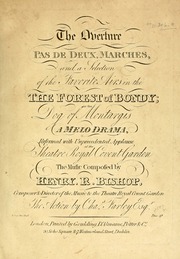 The Overture
PAS DE DEUX, MARCHES,
and a Selection
of the Favorite Airs in the
THE FOREST of BONDY;
or the
Dog of Montargis
A MELO DRAMA,
Performed with Unprecedented Applause
at the
Theatre Royal Covent Garden
The Music Composed by
HENRY. R. BISHOP,
Composer & Director of the Music to the Theatre Royal Covent Garden
The Action by Chas. Farley Esqr.
London, Printed by Goulding D'Almaine, Potter & Co.
20, Soho Square & 7 Westmorland Street, Dublin